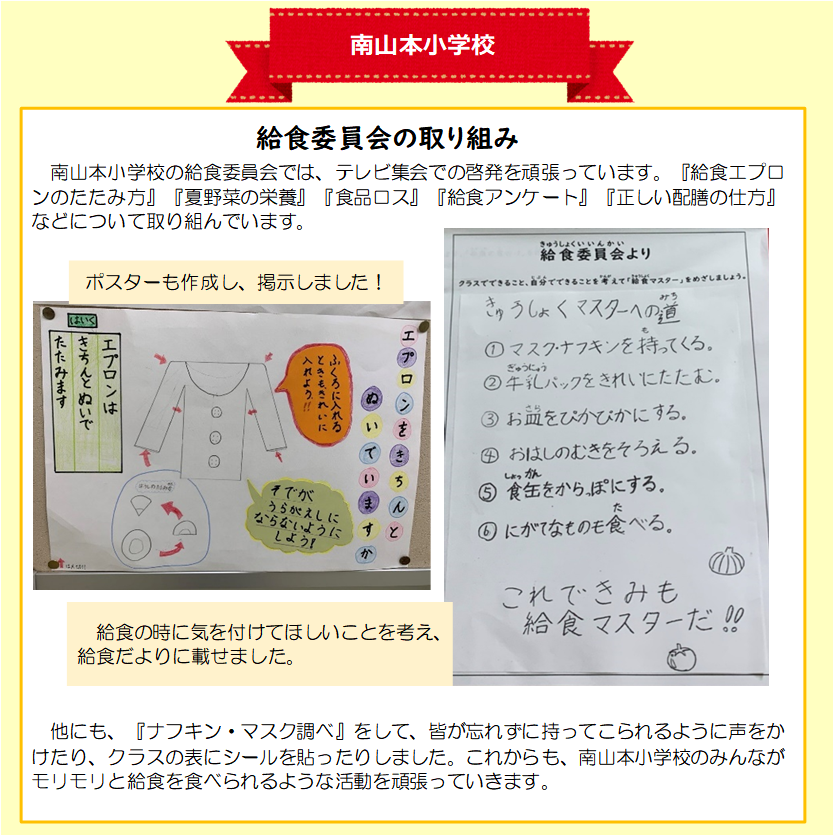 南山本小学校
給食委員会の取り組み
南山本小学校の給食委員会では、テレビ集会での啓発を頑張っています。『給食エプロ
ンのたたみ方』『夏野菜の栄養』『食品ロス』『給食アンケート』『正しい配膳の仕方』
などについて取り組んでいます。
ポスターも作成し、掲示しました！
はいく
エプロンは
きちんとぬいで
たたみます
ふくろに入れる
ときもきれいに
入れよう!!
エプロンをきちんと
ぬいでいますか
そでが
うらがえしに
ならないように
しよう!!
きゅうしょくいいんかい
給食委員会より
クラスでできること、自分でできることを考えて「給食マスター」をめざしましょう。
みち
きゅうしょくマスターへの道
も
①マスク・ナフキンを持ってくる。
ぎゅうにゅう
②牛乳パックをきれいにたたむ。
さら
③お皿をぴかぴかにする。
④おはしのむきをそろえる。
しょっかん
⑤食缶をからっぽにする。
た
⑥にがてなものも食べる。
これできみも
給食マスターだ!!
給食の時に気を付けてほしいことを考え、
給食だよりに載せました。
他にも、『ナフキン・マスク調べ』をして、皆が忘れずに持ってこられるように声をか
けたり、クラスの表にシールを貼ったりしました。これからも、南山本小学校のみんなが
モリモリと給食を食べられるような活動を頑張っていきます。